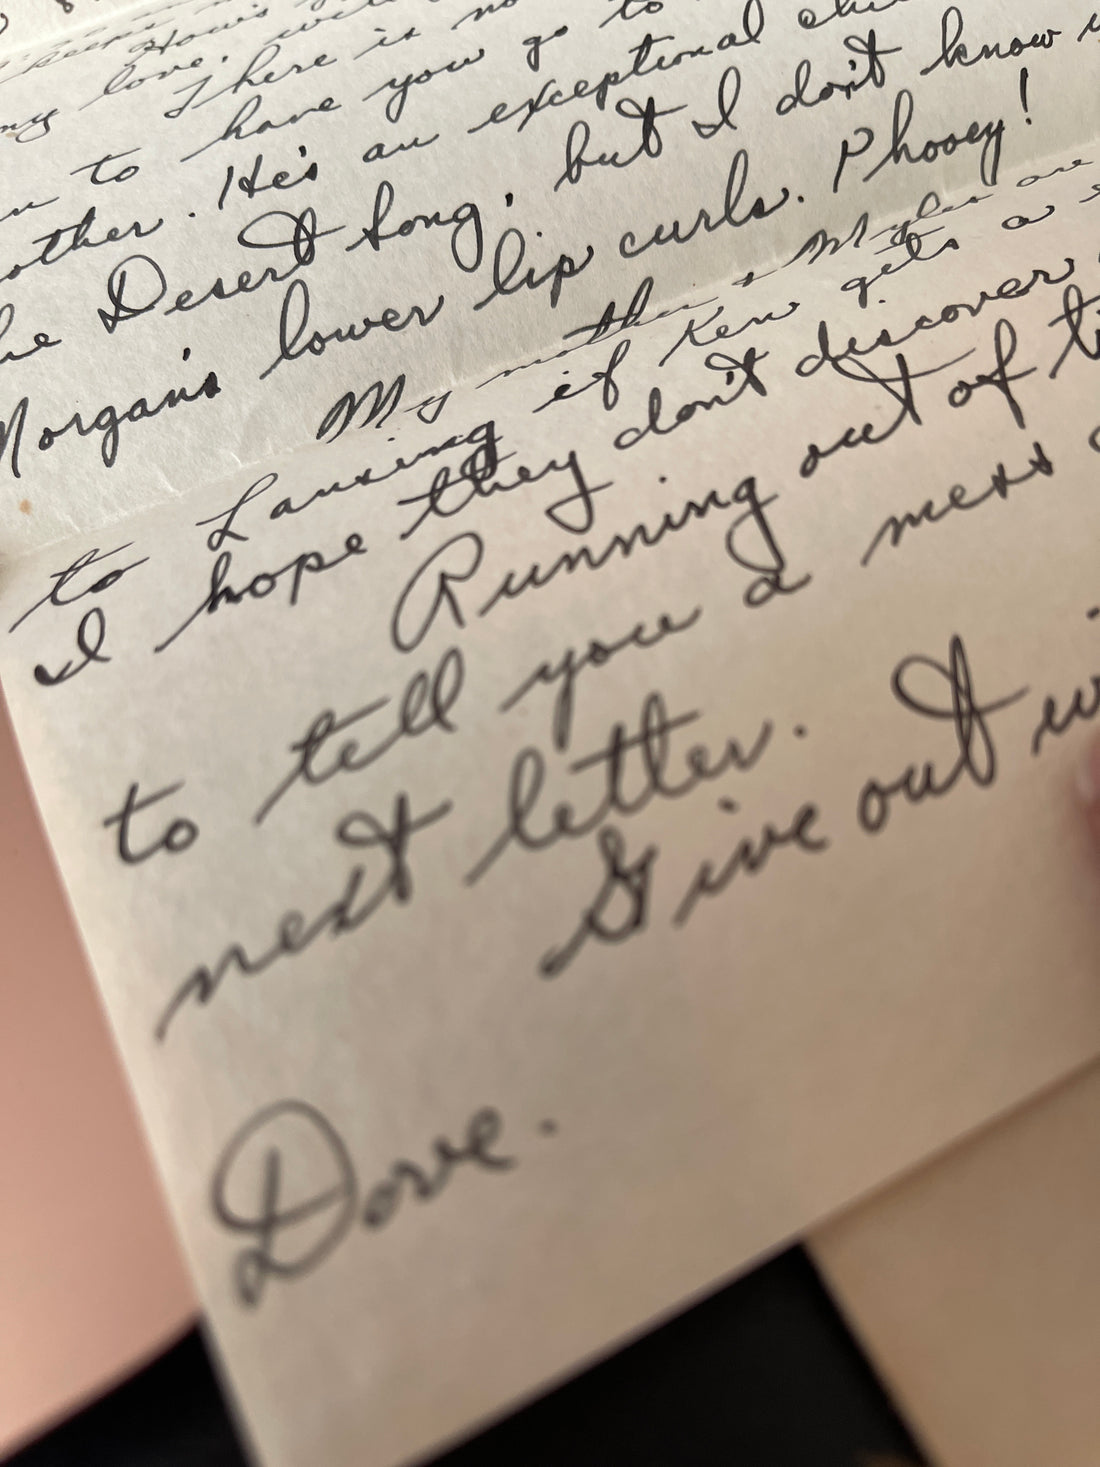 my love.
There is no
to have you go to
other. He's an exceptional
Desert Song, but I don't know
Morgan's lower lip curls. Phooey!
My mother & Myler are
to Lansing if Ken gets a
I hope they don't discover
Running out of
to tell you a mess
next letter.
Give out
Dove.